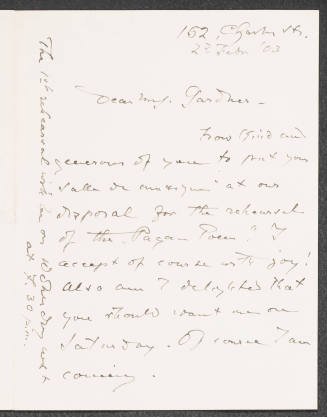 152, Charles St.
23 Febr '03
Dear Mrs. Gardner -
How kind and
generous of you to put your
"salle de musique" at our
disposal for the rehearsal
of the "Pagan Poem"! I
accept of course with joy!
Also am I delighted that
you should want me on
Saturday. Of course I am
coming.
The 1st rehearsal will be on Wednesday next
at 7.30 p.m.